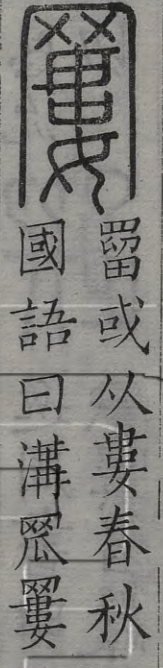 䍡
罶或从婁春秋
國語曰溝罛䍡